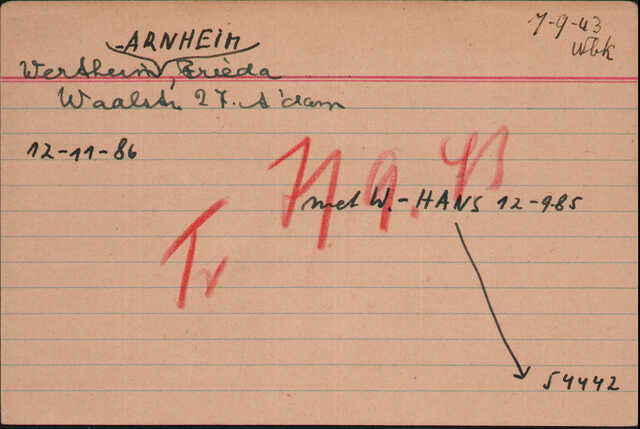 -ARNHEIM
7-9-43
Wbk
Wertheim, Frieda
Waalstr 27. A'dam
12-11-86
7/9.43
met W.-HANS 12-9-85
Tr
54442